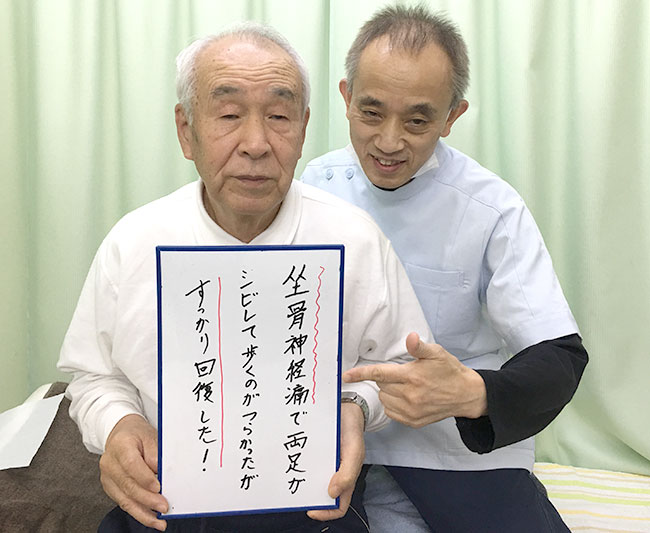 坐骨神経痛で両足が
シビレて歩くのがつらかったが
すっかり回復した!